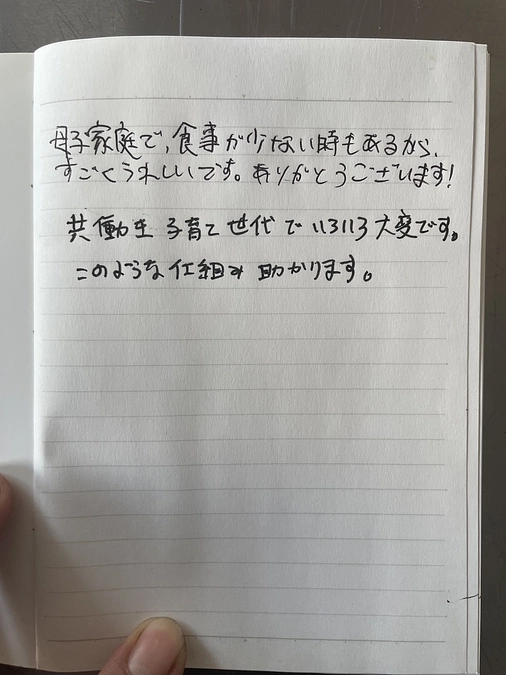 母子家庭で、食事が少ない時もあるから、
すごくうれしいです。ありがとうございます！
共働き 子育て世代でいろいろ大変です。
このような仕組み助かります。